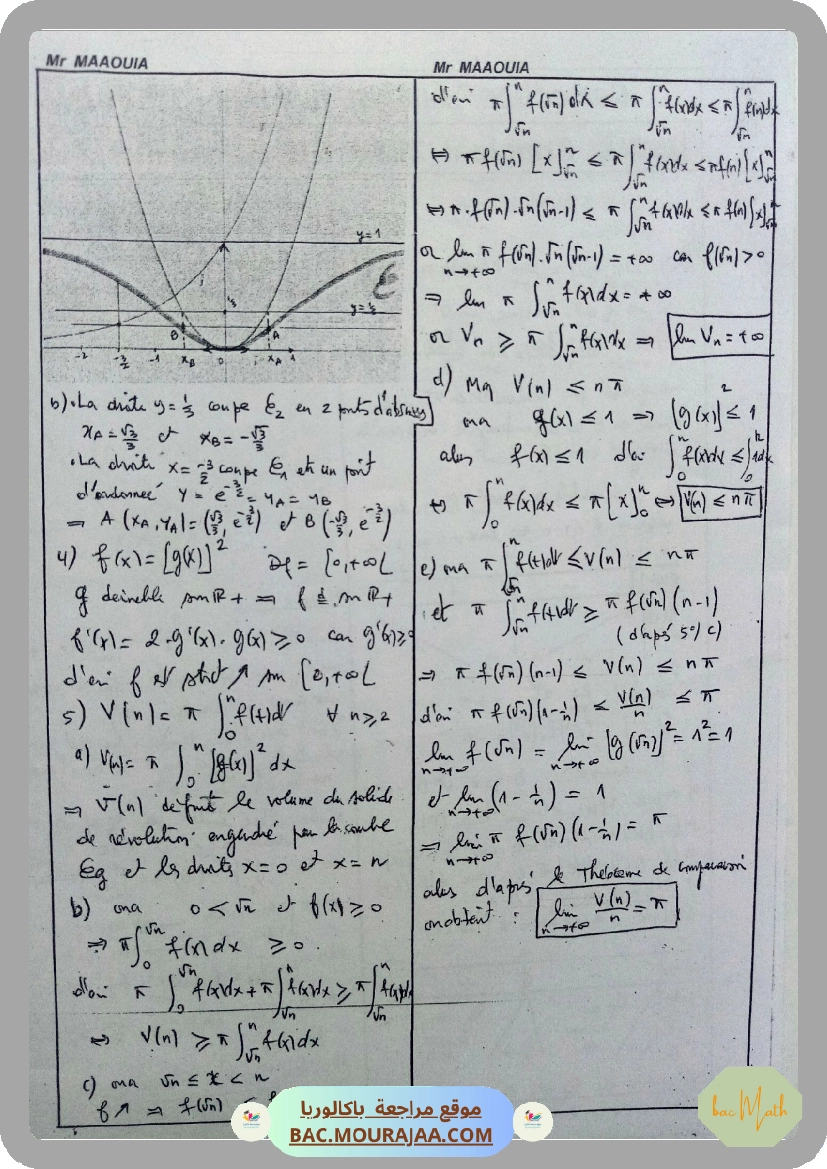 Mr MAAOUIA
y=1
y=1/3
B
A
-2 -3/2 -1 x_B 0 x_A 1
b) • La droite y = 1/3 coupe ℰ₂ en 2 points d'abscisses
x_A = √3/3 et x_B = -√3/3
• La droite x = -3/2 coupe ℰ₁ en un point
d'ordonnée y = e^(-3/2) = y_A = y_B
⇒ A(x_A, y_A) = (√3/3, e^(-3/2)) et B(-√3/3, e^(-3/2))
4) f(x) = [g(x)]² Df = [0,+∞[
g derivable sur ℝ+ ⇒ f d. sur ℝ+
f'(x) = 2·g'(x)·g(x) ≥ 0 car g'(x) ≥ 0
d'où f est strict ↗ sur [0,+∞[
5) V(n) = π ∫₀ⁿ f(t)dt ∀ n ≥ 2
a) V(n) = π ∫₀ⁿ [g(x)]² dx
⇒ V(n) définit le volume du solide
de révolution engendré par la courbe
ℰg et les droites x=0 et x=n
b) ona 0 < √n et f(x) ≥ 0
⇒ π∫₀^√n f(x)dx ≥ 0.
d'où π ∫₀^√n f(x)dx + π∫_√n^n f(x)dx ≥ π∫_√n^n f(x)dx
⇔ V(n) ≥ π∫_√n^n f(x)dx
c) ona √n ≤ x < n
f ↗ ⇒ f(√n) ≤
Mr MAAOUIA
d'où π∫_√n^n f(√n)dx ≤ π∫_√n^n f(x)dx ≤ π∫_√n^n f(n)dx
⇔ π f(√n) [x]_√n^n ≤ π∫_√n^n f(x)dx ≤ π f(n)[x]_√n^n
⇔ π·f(√n)·√n(√n-1) ≤ π∫_√n^n f(x)dx ≤ π f(n)[x]_√n^n
or lim n→+∞ π f(√n)·√n(√n-1) = +∞ car f(√n) > 0
⇒ lim π ∫_√n^n f(x)dx = +∞
or Vn ≥ π ∫_√n^n f(x)dx ⇒ lim Vn = +∞
d) Mq V(n) ≤ nπ
ona g(x) ≤ 1 ⇒ [g(x)]² ≤ 1
alors f(x) ≤ 1 d'où ∫₀ⁿ f(x)dx ≤ ∫₀ⁿ 1dx
⇔ π∫₀ⁿ f(x)dx ≤ π[x]₀ⁿ ⇔ V(n) ≤ nπ
e) ona π∫_√n^n f(t)dt ≤ V(n) ≤ nπ
et π ∫_√n^n f(t)dt ≥ π f(√n)(n-1)
(d'après 5°/ c)
⇒ π f(√n)(n-1) ≤ V(n) ≤ nπ
d'où π f(√n)(1-1/n) ≤ V(n)/n ≤ π
lim n→+∞ f(√n) = lim n→+∞ [g(√n)]² = 1² = 1
et lim n→+∞ (1-1/n) = 1
⇒ lim n→+∞ π f(√n)(1-1/n) = π
alors d'après le Théorème de comparaison
on obtient : lim n→+∞ V(n)/n = π
موقع مراجعة باكالوريا
BAC.MOURAJAA.COM
bac Math